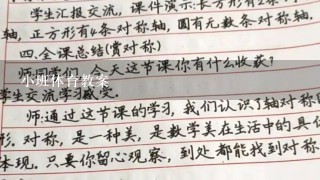 学生汇报交流，课件演示：长方形有2条
轴，正方形有4条对称轴，圆有无数条对称轴.
四.全课总结(赏对称)
师:同学们，今天这节课你有什么收获？
小班体育教案
学生交流学习感受.
师:通过这节课的学习，我们认识了轴对称图
形.对称，是一种美，是数学美在生活中的具体
体现.只要你留心观察，到处都能找到对称